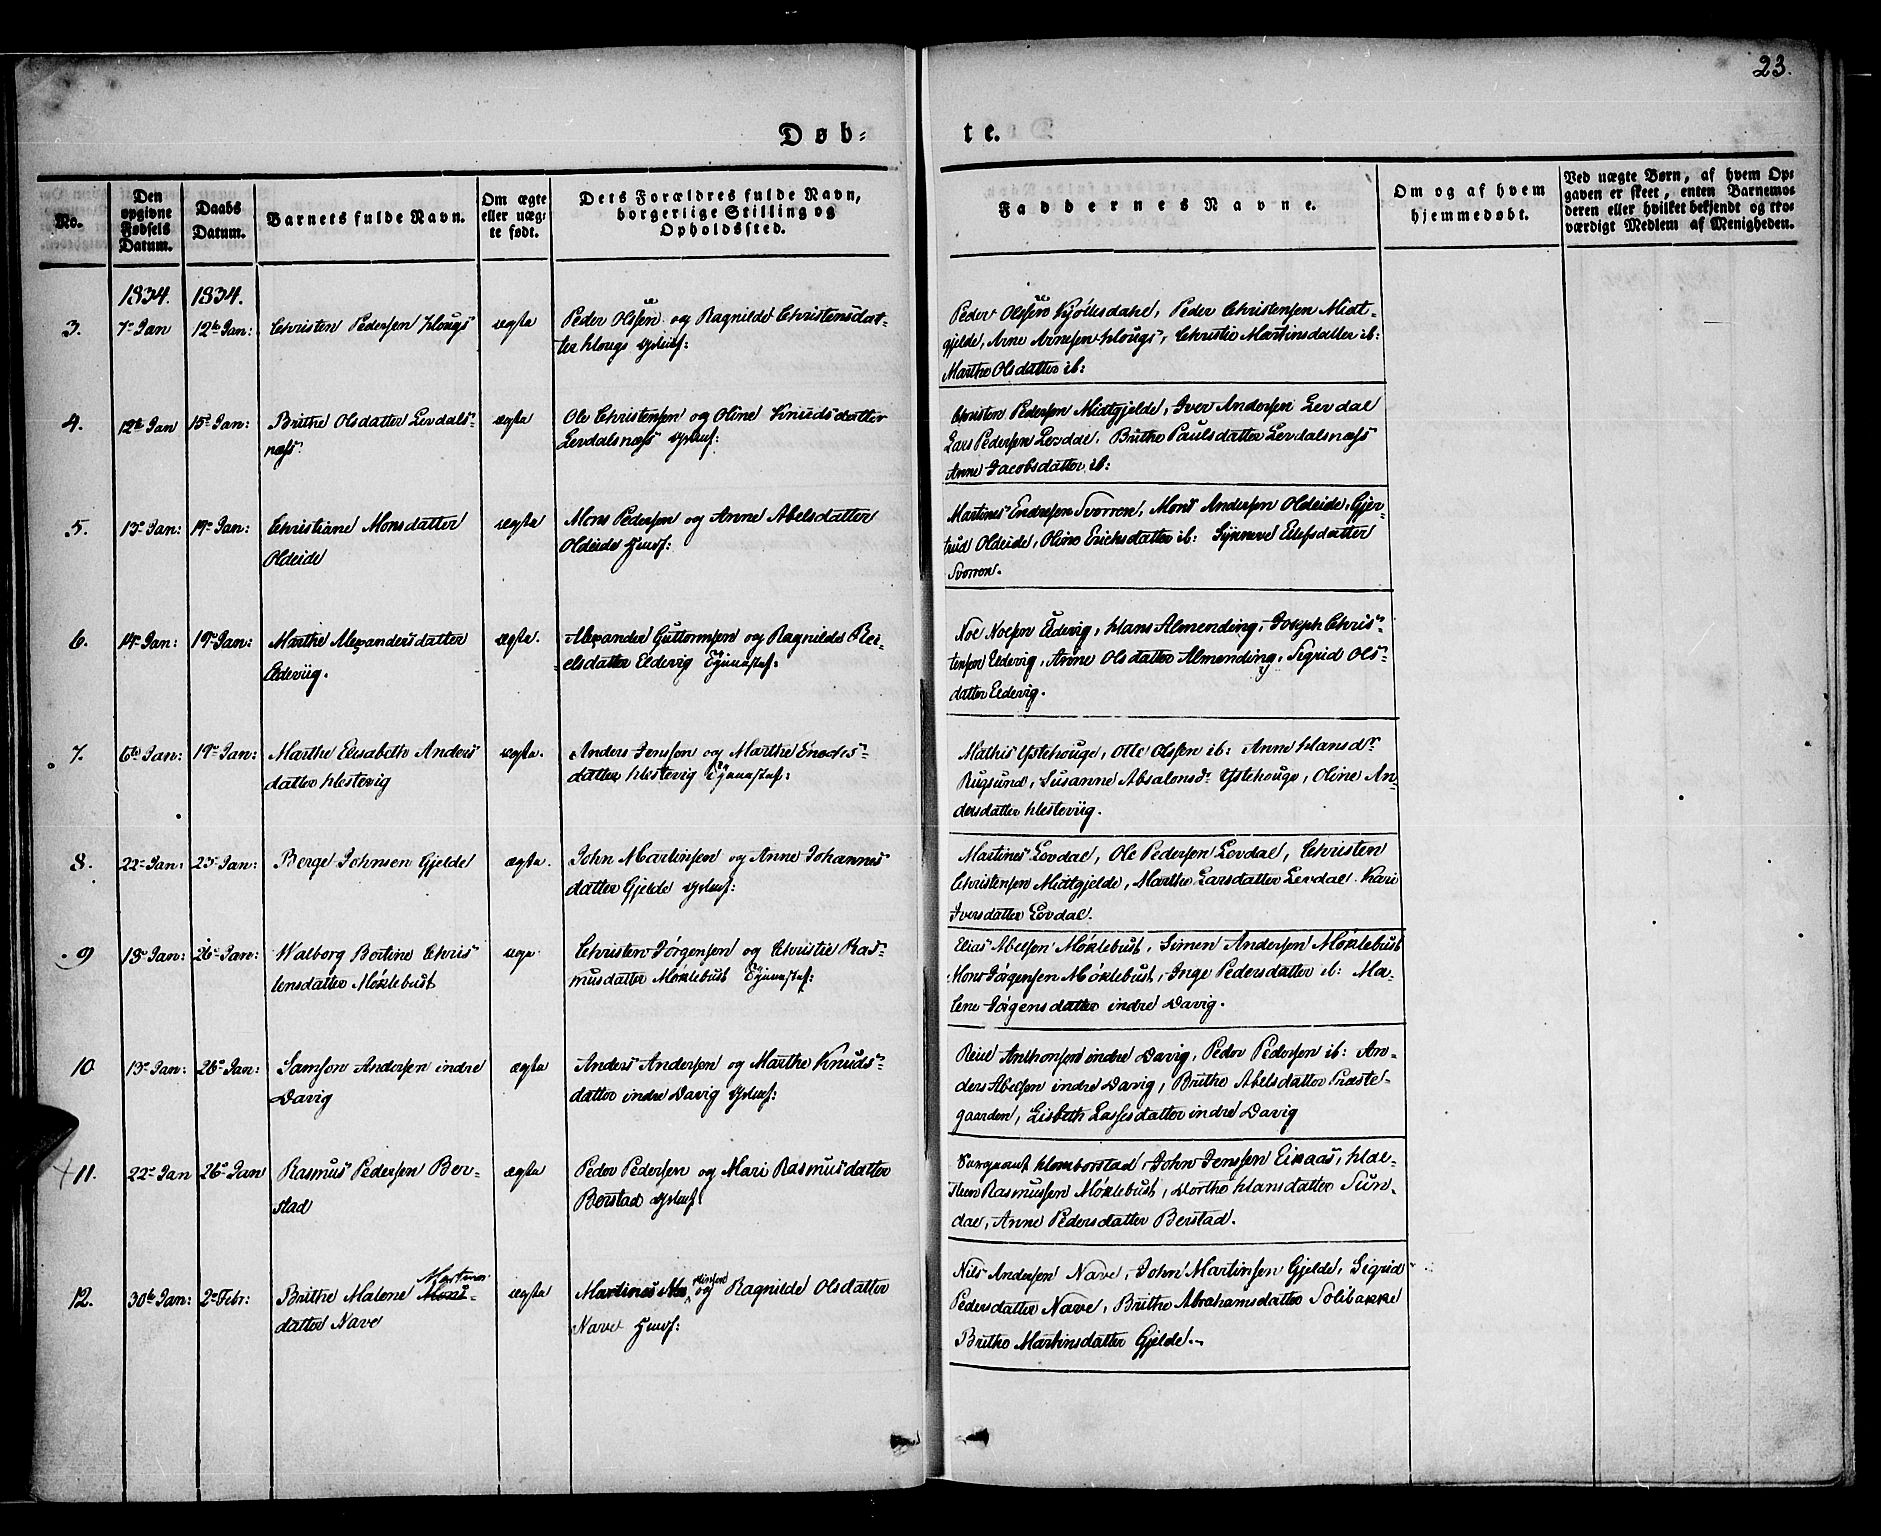 23.
Døb-
te.
No.
Den
opgivne
Fødsels
Datum.
Daabs
Datum.
Barnets fulde Navn.
Om ægte
eller uæg-
te født.
Dets Forældres fulde Navn,
borgerlige Stilling og
Opholdssted.
Faddernes Navne.
Om og af hvem
hjemmedøbt.
Ved uægte Børn, af hvem Op-
gaven er skeet, enten Barnemo-
deren eller hvilket bekjendt og tro-
værdigt Medlem af Menigheden.
1834. 1834.
3. 7de Jan 12te Jan: Christen Pedersen Hougs ægte
Peder Olsen og Ragnilde Christensdat-
ter Hougs
Peder Olsen Kjöllesdahl, Peder Christensen Midt-
gjelde, Arne Arnesen Hougs, Christie Martinsdatter ib:
Marthe Olsdatter ib:
4. 12te Jan 15de Jan: Brithe Olsdatter Levdals-
næss
ægte
Ole Christensen og Oline Knudsdatter
Levdalsnæss
Christen Pedersen Midtgjelde, Iver Andersen Levdal
Lars Pedersen Levdal, Brithe Paulsdatter Levdalsnæss
Anne Jacobsdatter ib:
5. 13de Jan: 19de Jan: Christiane Monsdatter
Oldeide
ægte
Mons Pedersen og Anne Abelsdatter
Oldeide
Martines Endresen Svorren, Mons Andersen Oldeide, Gjer-
trud Oldeide, Oline Erichsdatter ib: Synneve Elefsdatter
Svorren.
6. 14de Jan: 19de Jan: Marthe Alexandersdatter
Eldeviig.
ægte.
Alexander Guttormsen og Ragnilde Rei-
elsdatter Eldevig
Noe Noesen Eldevig, Hans Almending, Joseph Chris-
tensen Eldevig, Anne Olsdatter Almending, Sigrid Ols-
datter Eldevig.
7. 6te Jan: 19de Jan: Marthe Elisabeth Anders
datter Hestevig
ægte.
Anders Jensen og Marthe Enochs-
datter Hestevig
Mathis Ystehouge, Otte Olsen ib: Anne Hansdr
Rugsund, Susanne Absalonsdr Ystehouge, Oline An-
dersdatter Hesteviig.
8. 22de Jan: 25de Jan: Berge Johnsen Gjelde ægte.
John Martinsen og Anne Johannes
datter Gjelde
Martines Levdal, Ole Pedersen Levdal, Christen
Christensen Midtgjelde, Marthe Larsdatter Levdal Kari
Iversdatter Levdal.
9 18de Jan: 26de Jan: Walborg Bertine Chris
tensdatter Möklebust
Christen Jørgensen og Christie Ras-
musdatter Möklebust
Elias Abelsen Möklebust, Simen Andersen Möklebust
Mons Jörgensen Möklebust, Inge Pedersdatter ib: Ma-
lene Jörgensdatter indre Davig.
10 13de Jan: 26de Jan: Samson Andersen indre
Davig
ægte
Anders Andersen og Marthe Knuds-
datter indre Davig
Anthonsen indre Davig, Peder Pedersen ib: An-
ders Abelsen indre Davig, Brithe Abelsdatter Præste-
gaarden, Lisbeth Lassesdatter indre Davig
11. 22de Jan 26de Jan Rasmus Pedersen Ber-
stad
ægte
Peder Pedersen og Mari Rasmusdatter
Berstad
Sergeant Homborstad, John Jensen Einaas, Hal-
Rasmussen Möklebust, Dorthe Hansdatter Sün-
dal, Anne Pedersdatter Berstad.
12. 30te Jan: 2de Febr: Brithe Malene Mons-
datter Nave
ægte
Martinus og Ragnilde Olsdatter
Nave
Nils Andersen Nave, John Martinsen Gjelde, Sigrid
Pedersdatter Nave, Brithe Abrahamsdatter Solibakke
Brithe Martinsdatter Gjelde.